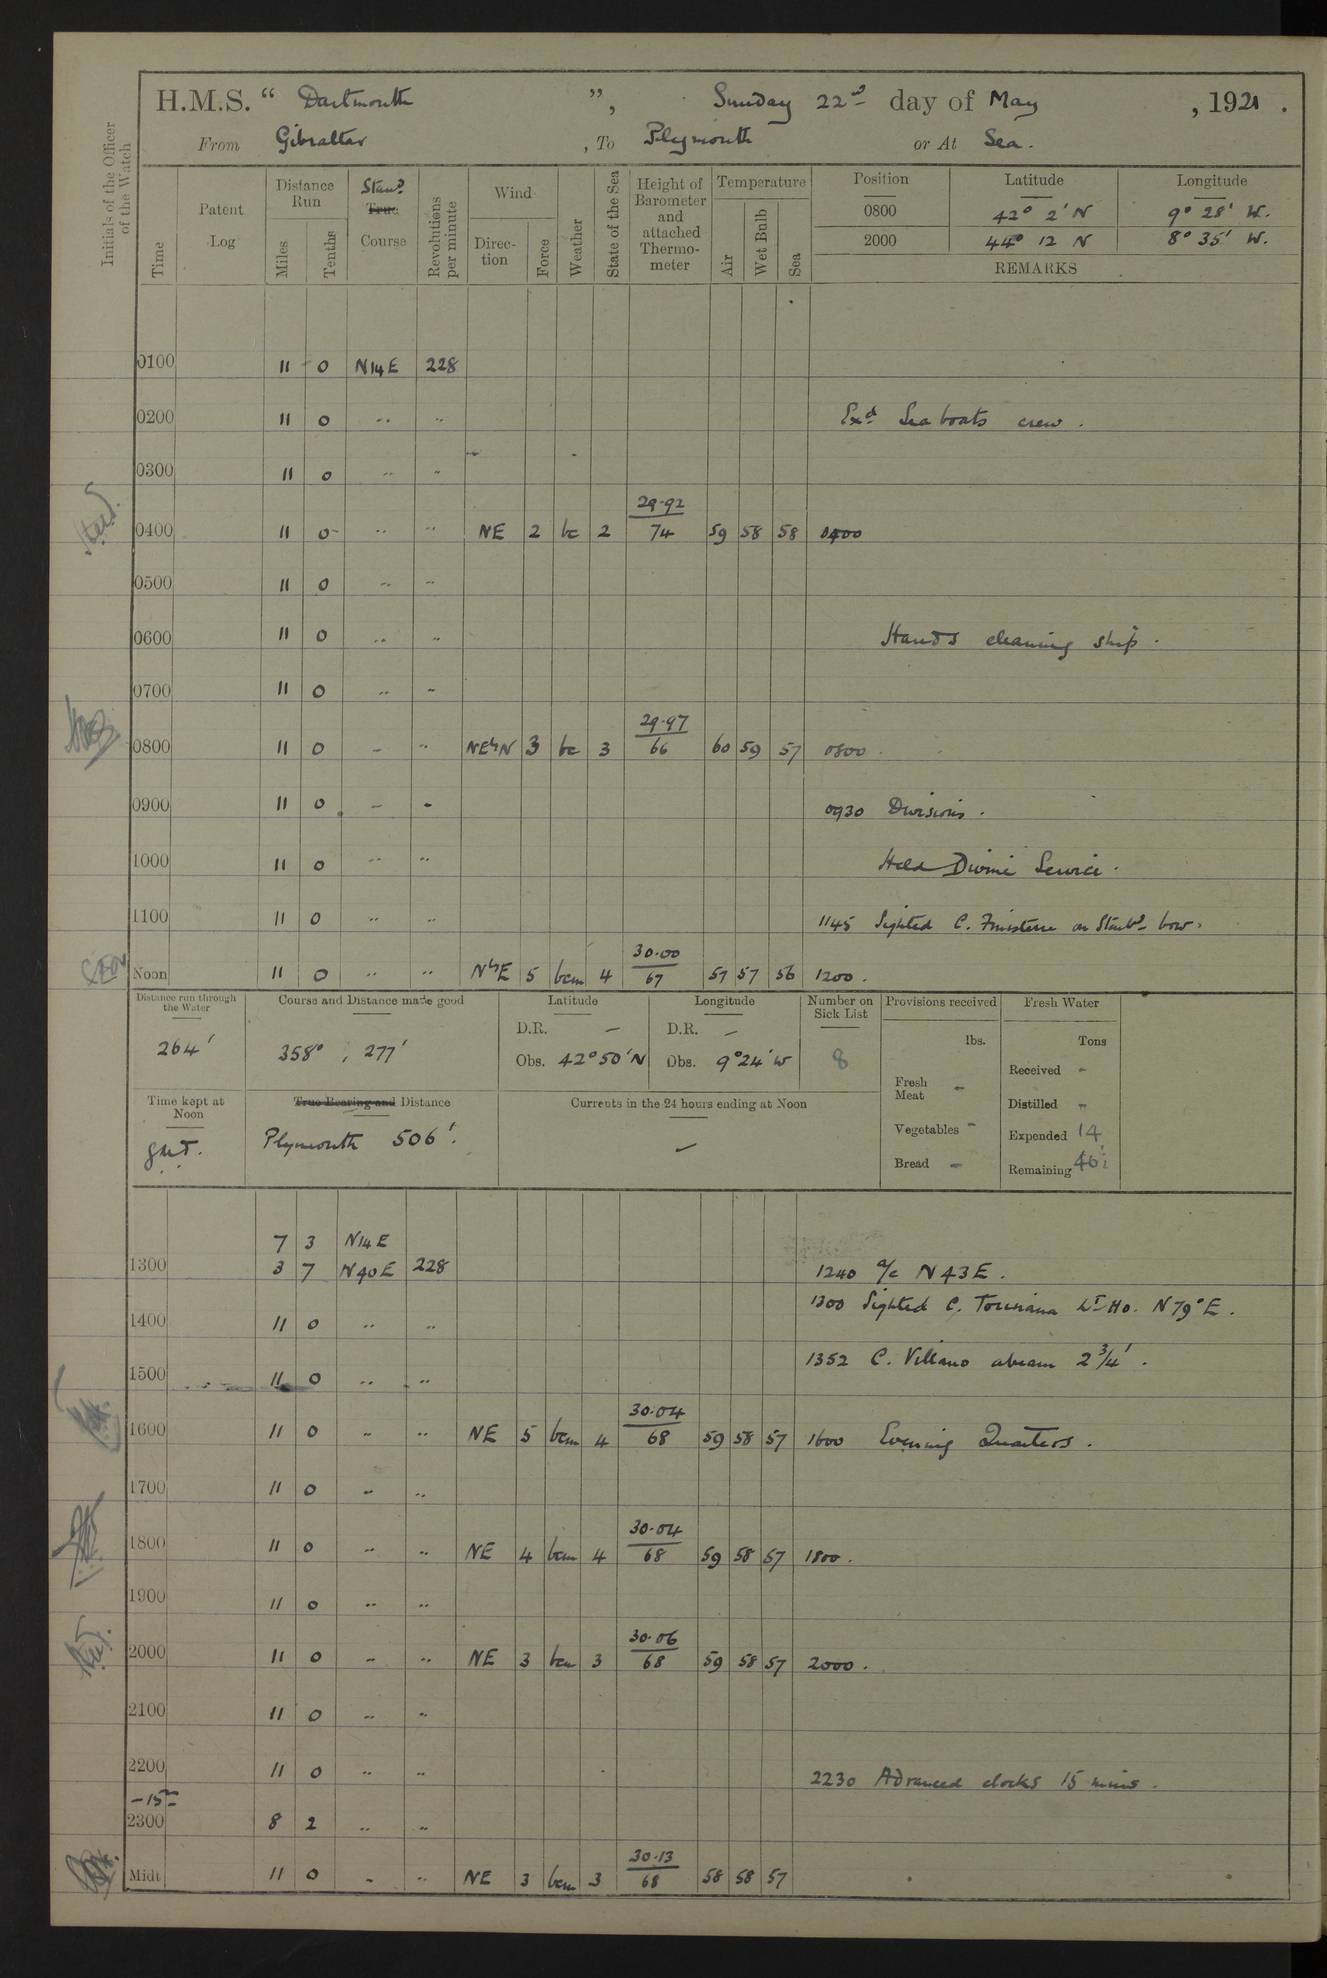 H.M.S. “ Dartmouth ”, Sunday 22nd day of May , 1921 .
From Gibraltar , To Plymouth or At Sea.
Initials of the Officer of the Watch
Time
Patent Log
Distance Run
Miles
Tenths
Stand.
True
Course
Revolutions per minute
Wind
Direction
Force
Weather
State of the Sea
Height of Barometer and attached Thermometer
Temperature
Air
Wet Bulb
Sea
Position Latitude Longitude
0800 42° 2' N 9° 28' W.
2000 44° 12 N 8° 35' W.
REMARKS
0100 11 0 N14E 228
0200 11 0 .. .. Exd Sea boats crew .
0300 11 0 .. ..
0400 11 0 .. .. NE 2 bc 2 29.92/74 59 58 58 0400
0500 11 0 .. ..
0600 11 0 .. .. Hands cleaning ship .
0700 11 0 .. ..
0800 11 0 .. .. NEbyN 3 bc 3 29.97/66 60 59 57 0800
0900 11 0 .. .. 0930 Divisions .
1000 11 0 .. .. Held Divine Service .
1100 11 0 .. .. 1145 Sighted C. Finisterre on Starbd bow.
Noon 11 0 .. .. NbyE 5 bcm 4 30.00/67 57 57 56 1200 .
Distance run through the Water
264'
Course and Distance made good
358° , 277'
Latitude
D.R. —
Obs. 42° 50' N
Longitude
D.R. —
Obs. 9° 24' W
Number on Sick List
8
Provisions received
lbs.
Fresh Meat -
Vegetables -
Bread -
Fresh Water
Tons
Received -
Distilled -
Expended 14
Remaining
Time kept at Noon
GMT.
True Bearing and Distance
Plymouth 506'.
Currents in the 24 hours ending at Noon
—
7 3 N14E
1300 3 7 N40E 228 1240 a/c N43E .
1300 Sighted C. Toriñana Lt Ho. N79°E .
1400 11 0 .. ..
1352 C. Villano abeam 2 3/4' .
1500 11 0 .. ..
1600 11 0 .. .. NE 5 bcm 4 30.04/68 59 58 57 1600 Evening Quarters .
1700 11 0 .. ..
1800 11 0 .. .. NE 4 bcm 4 30.04/68 59 58 57 1800 .
1900 11 0 .. ..
2000 11 0 .. .. NE 3 bcm 3 30.06/68 59 58 57 2000 .
2100 11 0 .. ..
2200 11 0 .. .. 2230 Advanced clocks 15 mins .
-15m
2300 8 2 .. ..
Midt 11 0 .. .. NE 3 bcm 3 30.13/68 58 58 57